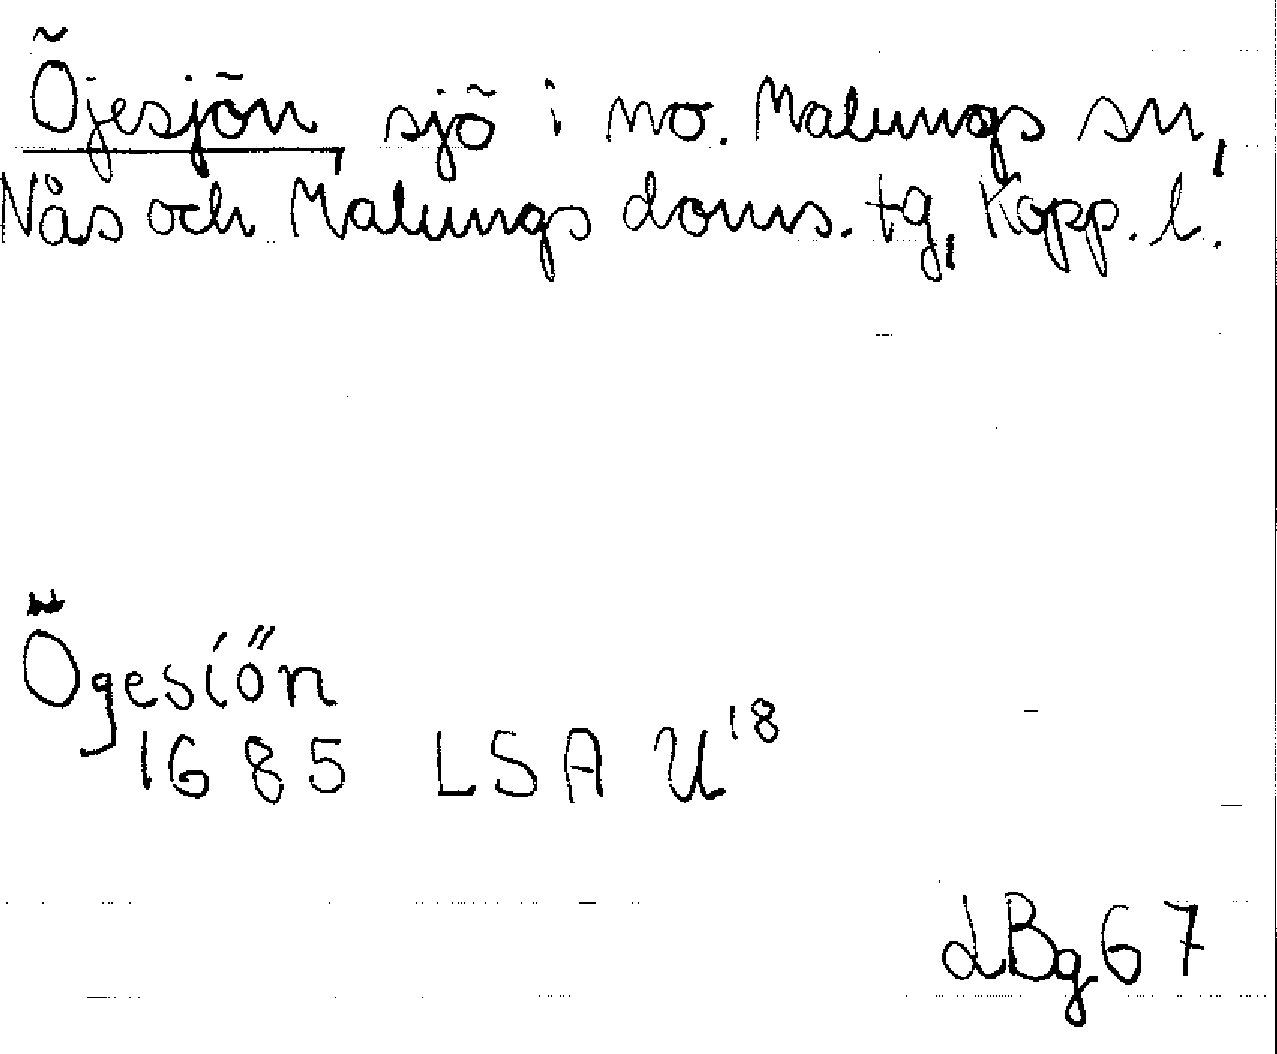 Öjesjön, sjö i no. Malungs sn,
Nås och Malungs doms. tg, Kopp. l.
Ögesiőn
1685 LSA U¹⁸
LBg 67